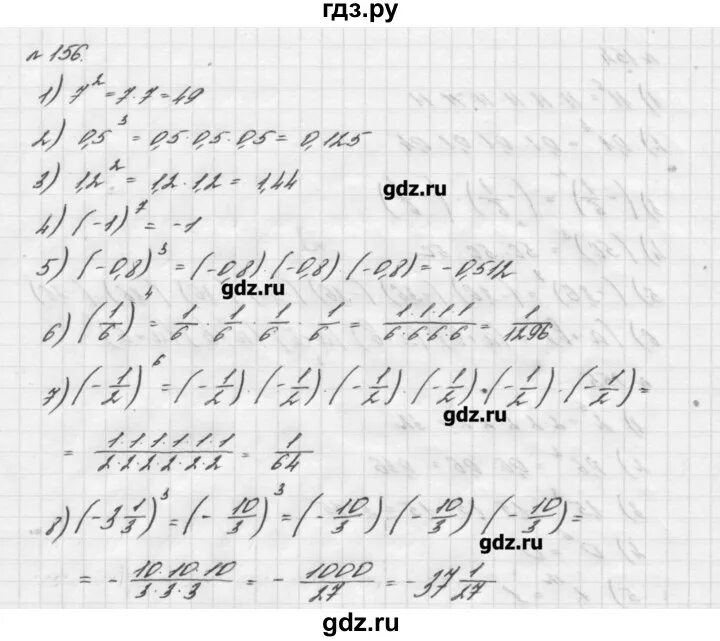 гдз.ру
№ 156.
1) 7² = 7·7 = 49
2) 0,5³ = 0,5·0,5·0,5 = 0,125
3) 1,2² = 1,2·1,2 = 1,44
gdz.ru
4) (-1)⁷ = -1
5) (-0,8)³ = (-0,8)·(-0,8)·(-0,8) = -0,512
gdz.ru
6) (1/6)⁴ = 1/6 · 1/6 · 1/6 · 1/6 = 1·1·1·1/6·6·6·6 = 1/1296
7) (-1/2)⁶ = (-1/2)·(-1/2)·(-1/2)·(-1/2)·(-1/2)·(-1/2) =
gdz.ru
= 1·1·1·1·1·1/2·2·2·2·2·2 = 1/64
8) (-3 1/3)³ = (-10/3)³ = (-10/3)·(-10/3)·(-10/3) =
gdz.ru
= - 10·10·10/3·3·3 = - 1000/27 = -37 1/27
gdz.ru